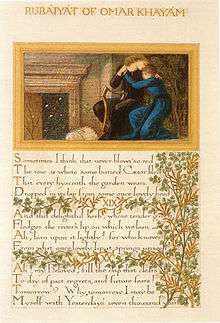 RUBAIYAT OF OMAR KHAYAM
Sometimes I think that never blows so red
The rose as where some buried Cæsar
That every hyacinth the garden wears
Dropped in its lap from some once lovely head
XIX
And this delightful herb whose tender
Fledges the river's lip on which we lean
Ah, lean upon it for who knows
From what once lovely lip it springs unseen
Ah, my Beloved, fill the cup that clears
Today of past regrets, and future fears
Tomorrow? Why tomorrow I may be
Myself with Yesterday's seven thousand